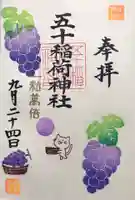 奉拝
五十稲荷神社
九月二十四日